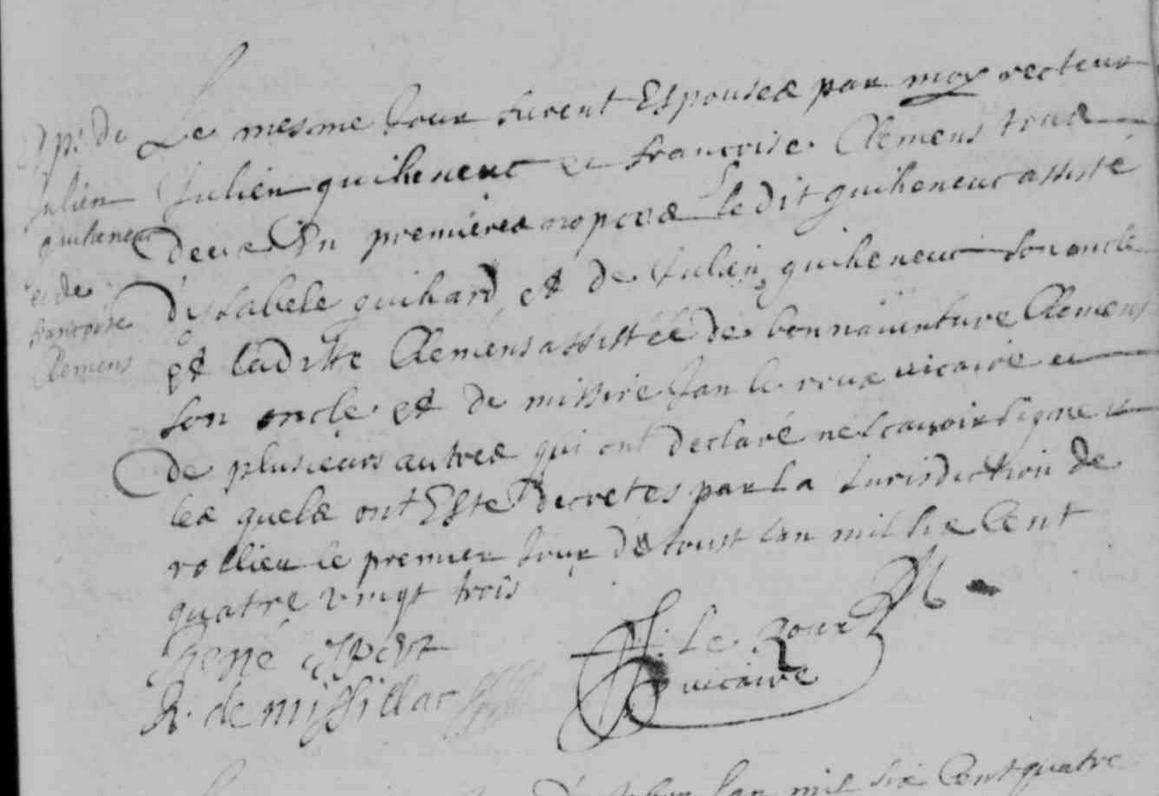 Le mesme Jour furent Espousés par moy recteur
Julien guiheneuc et francoise Clemens tous
deux En premieres nopces Ledit guiheneuc assisté
d'ysabele guihard et de Julien guiheneuc son oncle
et laditte Clemens assistée de bonnaventure Clemens
son oncle et de missire Jan le roux vicaire et
de plusieurs autres qui ont declaré ne scavoir signe
les quels ont Esté decretes par la Jurisdiction de
le premier Jour d'aoust l'an mil six Cent
quatre vingt trois
Julien
guiheneuc
et de
francoise
Clemens
René
R. de missillac
J. Le roux
vicaire
l'an mil six Cent quatre